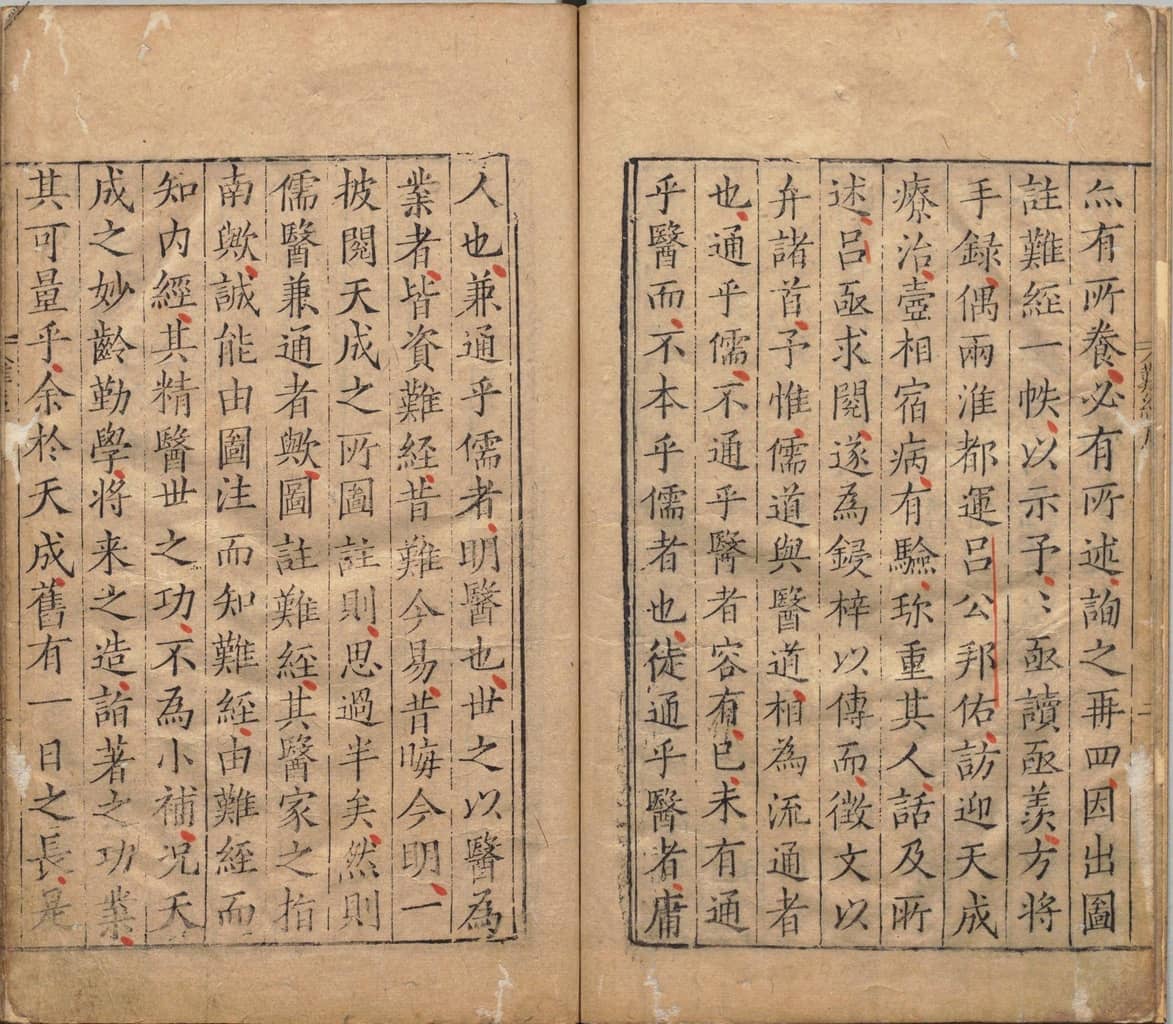 亦有所養必有所述詢之再四因出圖
註難經一帙以示予〻亟讀亟羡方將
手録偶兩淮都運吕公邦佑訪迎天成
療治壼相宿病有驗珎重其人話及所
述吕亟求閱遂為鋟梓以傳而徵文以
弁諸首予惟儒道與醫道相為流通者
也通乎儒不通乎醫者容有已未有通
乎醫而不本乎儒者也徒通乎醫者庸
人也兼通乎儒者明醫也世之以醫為
業者皆資難經昔難今易昔晦今明一
披閱天成之所圖註則思過半矣然則
儒醫兼通者歟圖註難經其醫家之指
南歟誠能由圖注而知難經由難經而
知内經其精醫世之功不為小補况天
成之妙齡勤學將来之造詣著之功業
其可量乎余於天成舊有一日之長是